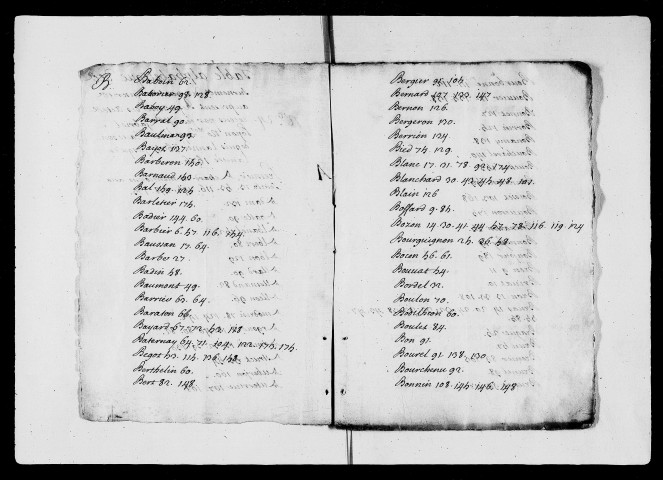 B.
Baboin 62.
Batonier 98. 128
Baboy 49.
Barral 90.
Baulmar 93
Baiet 137.
Barberon 140.
Barnaud 143
Bal 149. 124
Barletier 174.
Badier 144. 60.
Barbier 6. 47. 116. 144.
Baussan 17. 64.
Barbe 27.
Badin 48.
Baumont 49.
Barrier 63. 64.
Baraton 66.
Bayard 67. 72. 42. 128
Baternay 64. 71. 104. 122. 173. 174.
Begos 43. 114. 136. 148.
Berthelin 60.
Bert 82. 148.
Bergier 95. 104.
Bernard 127. 133. 147
Bernon 126.
Bergeron 130.
Berrien 124.
Bied 74. 129.
Blanc 17. 31. 78. 93. 174
Blanchard 30. 43. 44. 48. 103.
Blain 126
Boffard 9. 84.
Bozon 14. 30. 41. 44. 67. 78. 116. 119. 124
Bourguignon 24. 36. 48.
Bocon 46. 61.
Bouvat 54.
Bordel 32.
Boulon 70.
Boulet 84.
Bon 91.
Bourel 91. 138. 130.
Bourchenu 92.
Bonnin 108. 144. 146. 148